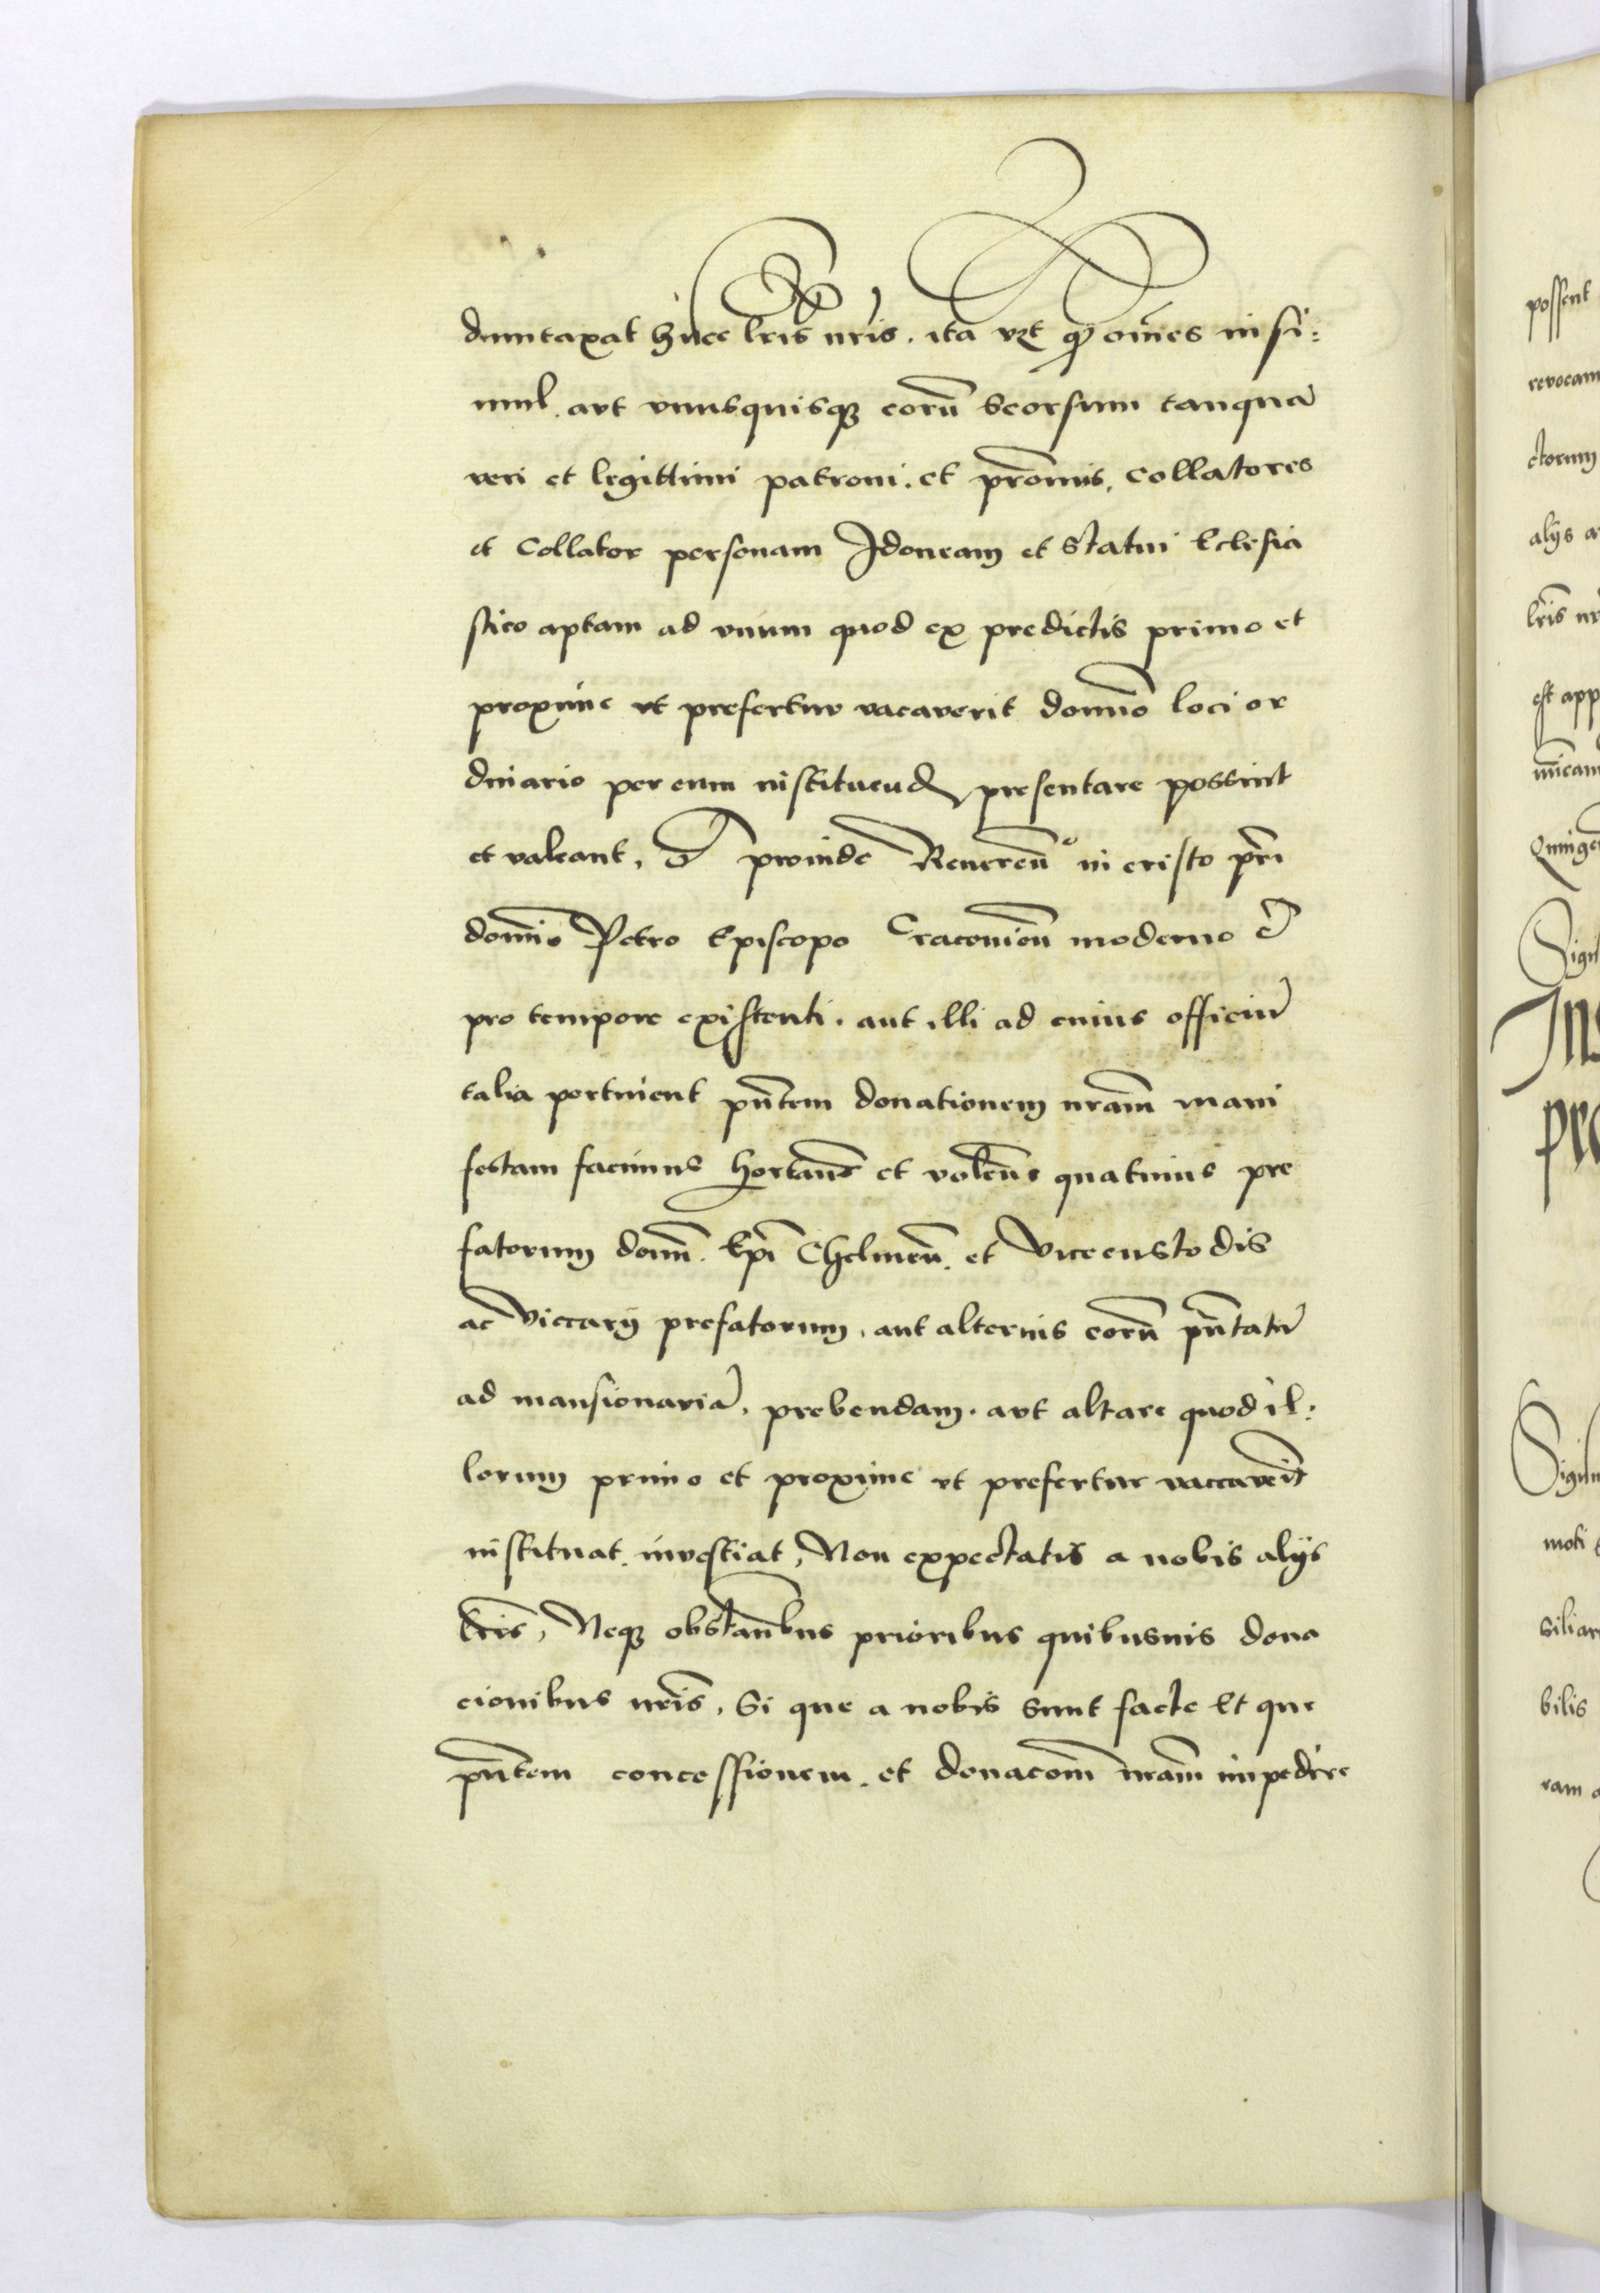 duntaxat hijce lris nris. ita vt qd omnes insi:
mul. aut vnusquisq3 eorū seorsum tanquā
veri et legittimi patroni. et collatores
et Collator personam Idoneam et statui Eclesia
stico aptam ad vnum quod ex predictis primo et
proxime vt prefertur vacaverit domno loci or
dinario per eum instituend presentare possint
et valeant, proinde Reuerenº in cristo pri
domio Petro Episcopo Cracouien moderno
pro tempore existenti. aut illi ad cuius officiū
talia pertinent pntem donationem nram mani
festam facimus hortans et volens quatinus pre
fatorum dom. Epi Chelmen. et Vicecustodis
ac Viccarij prefatorum, aut alterius eorū pntatū
ad mansionariā, prebendam. aut altare quod il:
lorum primo et proxime vt prefertur vaccaverit
instituat. investiat, Non expectatis a nobis alijs
lris, Neq3 obstantbus prioribus quibusuis dona
cionibus nris, Si que a nobis sunt facte Et que
pntem concessionem. et donacom nram impedire
possent
revocam
ctorum
alijs a
lris nr
est app
Quinge
Sigil
Ins
pre
moti
siliar
bilis
ram a